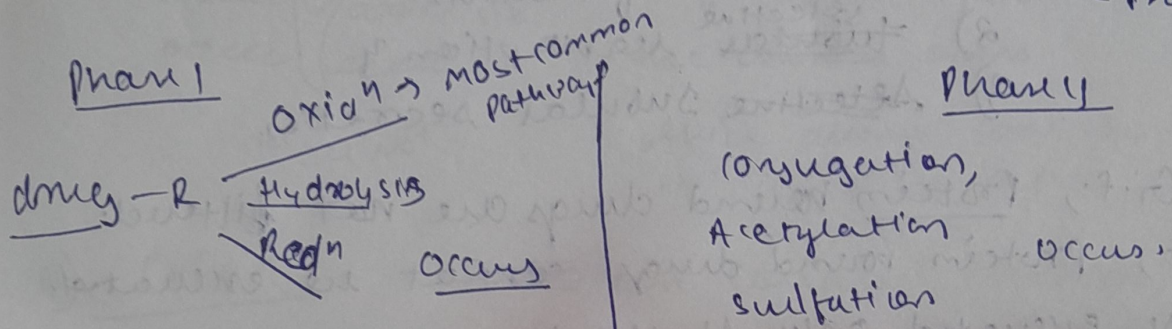 Phase I
oxidⁿ → most common
pathway
drug - R
Hydrolysis
Redⁿ
occurs
Phase II
Conjugation,
Acetylation
occurs.
sulfation